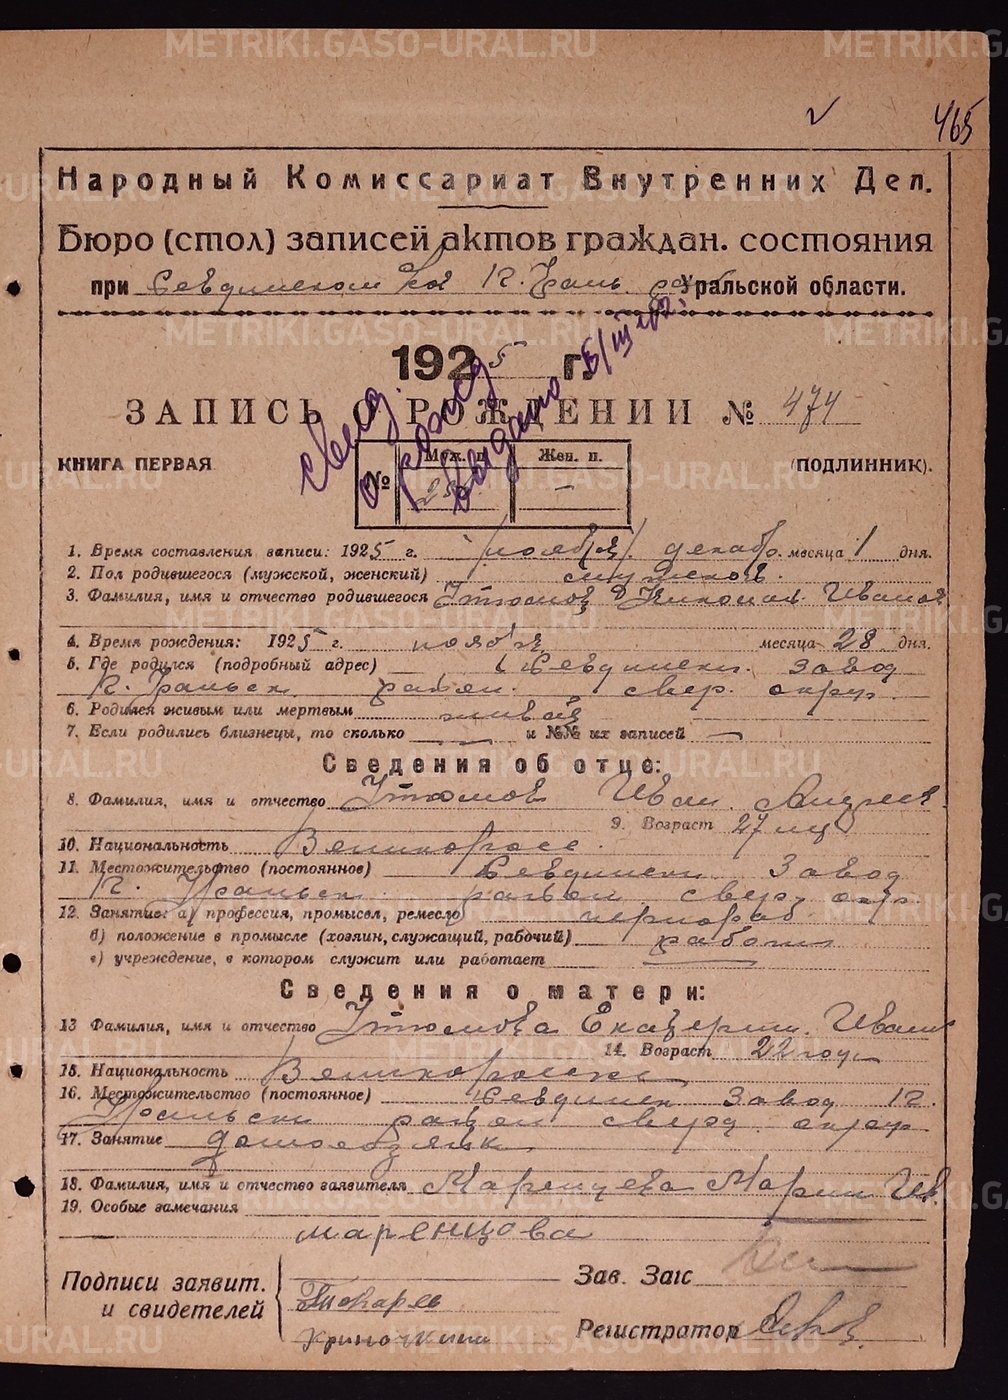 METRIKI.GASO-URAL.RU
465
Народный Комиссариат Внутренних Дел.
Бюро (стол) записей актов граждан. состояния
при Уральской области.
1925 г.
ЗАПИСЬ О РОЖДЕНИИ № 474
КНИГА ПЕРВАЯ (ПОДЛИННИК).
№ Муж. п. Жен. п.
1. Время составления записи: 1925 г. /ноября/ декабр. месяца 1 дня.
2. Пол родившегося (мужской, женский) мужеской.
3. Фамилия, имя и отчество родившегося Утюмов Николай Иванов
4. Время рождения: 1925 г. ноября месяца 28 дня.
5. Где родился (подробный адрес) Завод
К. Уральск. район. свер. округ.
6. Родился живым или мертвым живой
7. Если родились близнецы, то сколько — и №№ их записей —
Сведения об отце:
8. Фамилия, имя и отчество Утюмов Иван Андреев.
9. Возраст 27 лет
10. Национальность Великоросс.
11. Местожительство (постоянное) Завод
К. Уральск. район свер. окр.
12. Занятие: а) профессия, промысел, ремесло чернораб.
б) положение в промысле (хозяин, служащий, рабочий) рабочий
в) учреждение, в котором служит или работает
Сведения о матери:
13 Фамилия, имя и отчество Утюмова Екатерин. Иван
14. Возраст 22 года
15. Национальность Великоросска
16. Местожительство (постоянное) Завод К.
Уральск район сверд. округ
17. Занятие домохозяйк
18. Фамилия, имя и отчество заявителя Маренцева Мария Ив.
19. Особые замечания
маренцова
Подписи заявит. и свидетелей
Токарь
Зав. Загс
Регистратор